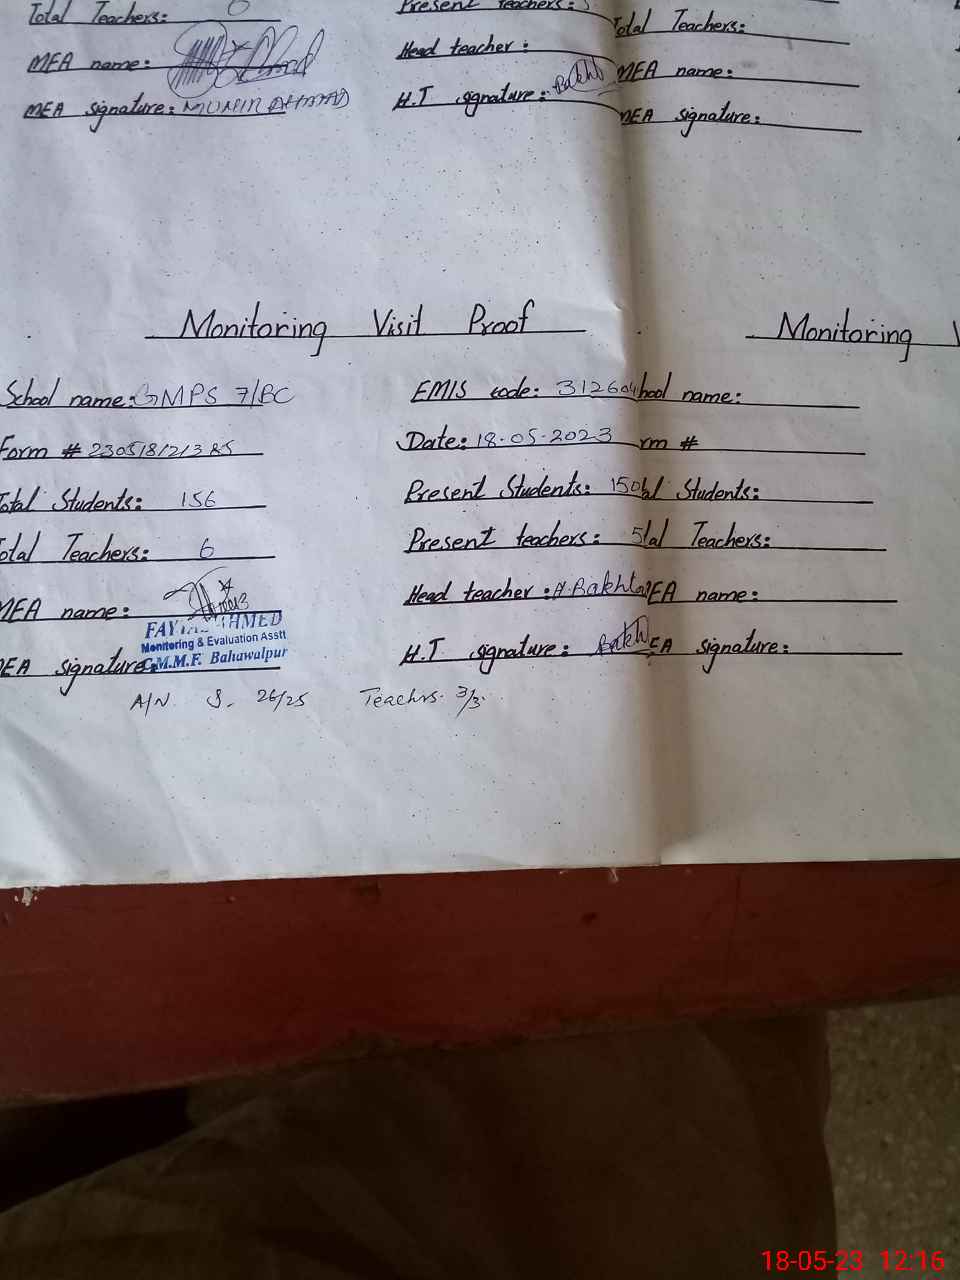 Total Teachers: 6 Present teachers: 5 Total Teachers:
MEA name: Head teacher: MEA name:
MEA signature: MUNIR AHMAD H.T signature: Bakht MEA signature:
Monitoring Visit Proof Monitoring V
School name: GMPS 7/BC EMIS code: 312604 hool name:
Form # 230518121385 Date: 18.05.2023 rm #
Total Students: 156 Present Students: 150 tal Students:
Total Teachers: 6 Present teachers: 5 tal Teachers:
MEA name: Head teacher: A.Bakhta EA name:
AHMED
Monitoring & Evaluation Asstt
MEA signature: C.M.M.F. Bahawalpur H.T signature: Bakh EA signature:
A/N. S. 26/25 Teachrs. 3/3.
18-05-23 12:16